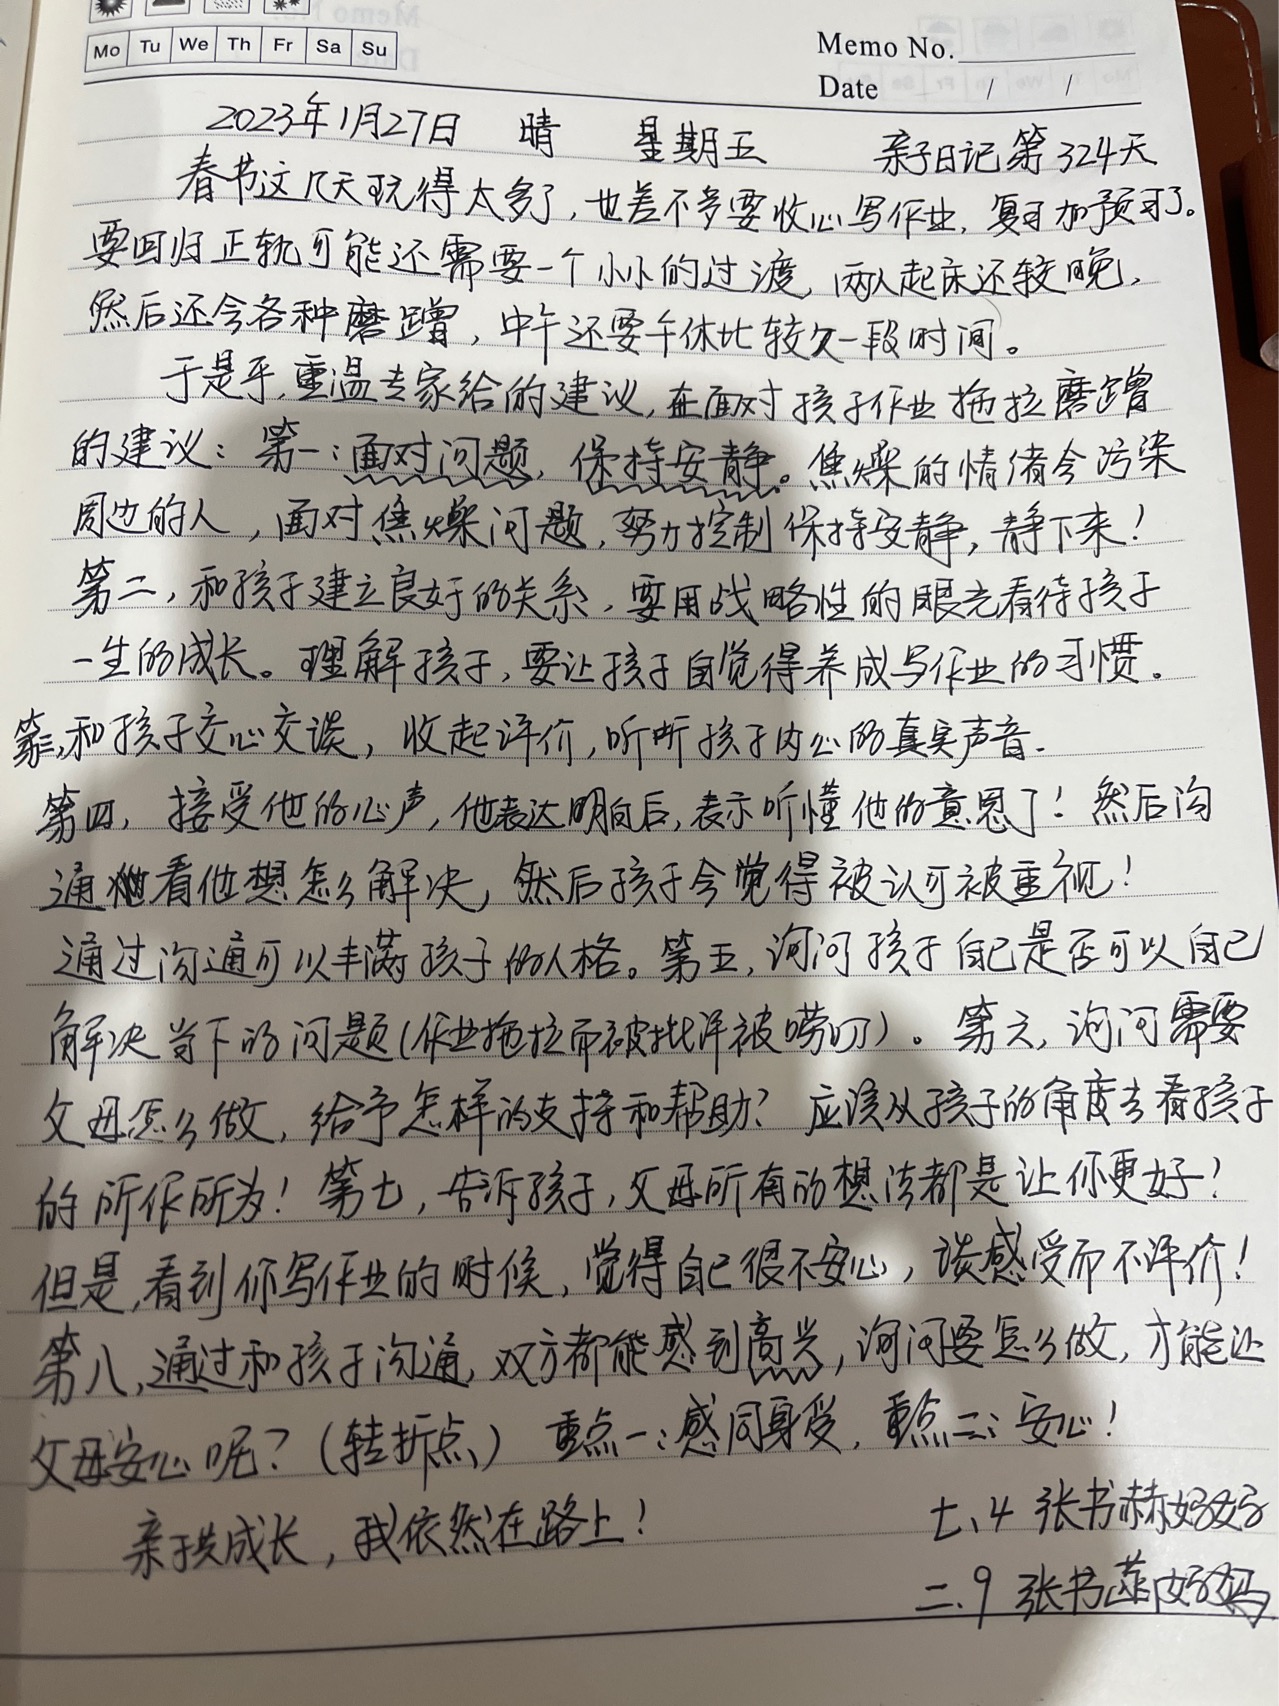 Mo Tu We Th Fr Sa Su
Memo No.
Date / /
2023年1月27日 晴 星期五 亲子日记第324天
春节这几天玩得太多了,也差不多要收心写作业,复习加预习了。
要回归正轨可能还需要一个小小的过渡,两人起床还较晚,
然后还会各种磨蹭,中午还要午休比较久一段时间。
于是乎,重温专家给的建议,在面对孩子作业拖拉磨蹭
的建议:第一:面对问题,保持安静。焦燥的情绪会污染
周边的人,面对焦燥问题,努力控制保持安静,静下来!
第二,和孩子建立良好的关系,要用战略性的眼光看待孩子
一生的成长。理解孩子,要让孩子自觉得养成写作业的习惯。
第三,和孩子交心交谈,收起评价,听听孩子内心的真实声音.
第四,接受他的心声,他表达明白后,表示听懂他的意思了!然后沟
通看他想怎么解决,然后孩子会觉得被认可被重视!
通过沟通可以丰满孩子的人格。第五,询问孩子自己是否可以自己
解决当下的问题(作业拖拉而被批评被唠叨)。第六,询问需要
父母怎么做,给予怎样的支持和帮助?应该从孩子的角度去看孩子
的所作所为!第七,告诉孩子,父母所有的想法都是让你更好!
但是,看到你写作业的时候,觉得自己很不安心,谈感受而不评价!
第八,通过和孩子沟通,双方都能感到高兴,询问要怎么做,才能让
父母安心呢?(转折点)重点一:感同身受,重点二:安心!
亲子共成长,我依然在路上!
七、4 张书赫妈妈
二、9 张书菲妈妈